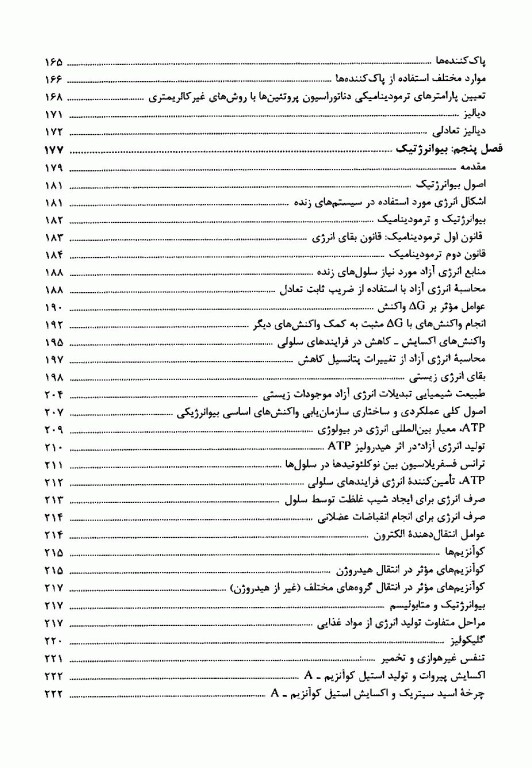 پاک‌کننده‌ها ........ ۱۶۵
موارد مختلف استفاده از پاک‌کننده‌ها ........ ۱۶۶
تعیین پارامترهای ترمودینامیکی دناتوراسیون پروتئین‌ها با روش‌های غیرکالریمتری ........ ۱۶۸
دیالیز ........ ۱۷۱
دیالیز تعادلی ........ ۱۷۲
فصل پنجم: بیوانرژتیک ........ ۱۷۷
مقدمه ........ ۱۷۹
اصول بیوانرژتیک ........ ۱۸۱
اشکال انرژی مورد استفاده در سیستم‌های زنده ........ ۱۸۱
بیوانرژتیک و ترمودینامیک ........ ۱۸۲
قانون اول ترمودینامیک: قانون بقای انرژی ........ ۱۸۳
قانون دوم ترمودینامیک ........ ۱۸۴
منابع انرژی آزاد مورد نیاز سلول‌های زنده ........ ۱۸۸
محاسبهٔ انرژی آزاد با استفاده از ضریب ثابت تعادل ........ ۱۸۸
عوامل مؤثر بر ΔG واکنش ........ ۱۹۰
انجام واکنش‌های با ΔG مثبت به کمک واکنش‌های دیگر ........ ۱۹۲
واکنش‌های اکسایش ـ کاهش در فرایندهای سلولی ........ ۱۹۵
محاسبهٔ انرژی آزاد از تغییرات پتانسیل کاهش ........ ۱۹۷
بقای انرژی زیستی ........ ۱۹۸
طبیعت شیمیایی تبدیلات انرژی آزاد موجودات زیستی ........ ۲۰۴
اصول کلی عملکردی و ساختاری سازمان‌یابی واکنش‌های اساسی بیوانرژیکی ........ ۲۰۷
ATP، معیار بین‌المللی انرژی در بیولوژی ........ ۲۰۹
تولید انرژی آزاد در اثر هیدرولیز ATP ........ ۲۱۰
ترانس فسفریلاسیون بین نوکلئوتیدها در سلول‌ها ........ ۲۱۱
ATP، تأمین‌کنندهٔ انرژی فرایندهای سلولی ........ ۲۱۲
صرف انرژی برای ایجاد شیب غلظت توسط سلول ........ ۲۱۳
صرف انرژی برای انجام انقباضات عضلانی ........ ۲۱۴
عوامل انتقال‌دهندهٔ الکترون ........ ۲۱۴
کوآنزیم‌ها ........ ۲۱۵
کوآنزیم‌های مؤثر در انتقال هیدروژن ........ ۲۱۵
کوآنزیم‌های مؤثر در انتقال گروه‌های مختلف (غیر از هیدروژن) ........ ۲۱۷
بیوانرژتیک و متابولیسم ........ ۲۱۷
مراحل متفاوت تولید انرژی از مواد غذایی ........ ۲۱۷
گلیکولیز ........ ۲۲۰
تنفس غیرهوازی و تخمیر ........ ۲۲۱
اکسایش پیروات و تولید استیل کوآنزیم ـ A ........ ۲۲۲
چرخهٔ اسید سیتریک و اکسایش استیل کوآنزیم ـ A ........ ۲۲۲